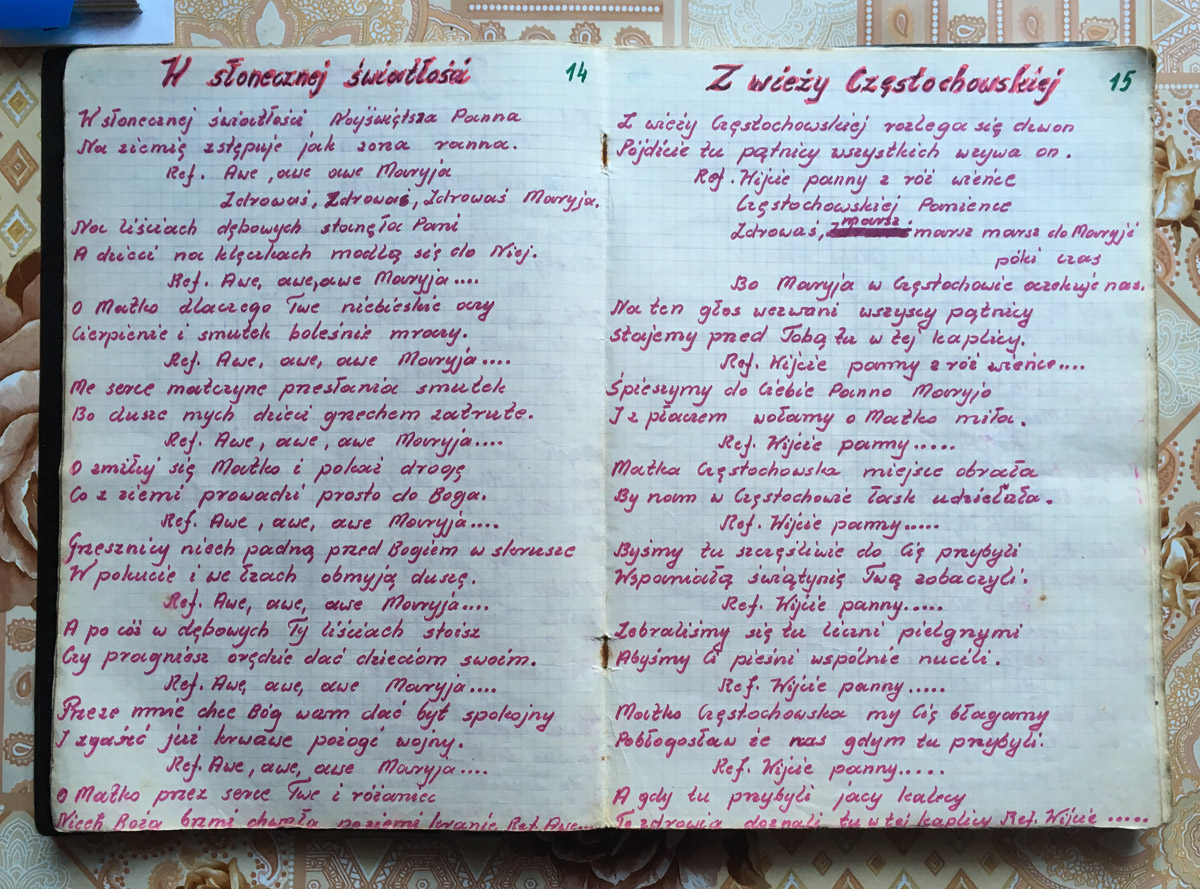 W słonecznej światłości 14
W słonecznej światłości Najświętsza Panna
Na ziemię zstępuje jak zorza ranna.
Ref. Awe, awe awe Maryja
Zdrowaś, Zdrowaś, Zdrowaś Maryja.
Na liściach dębowych stanęła Pani
A dzieci na klęczkach modlą się do Niej.
Ref. Awe, awe, awe Maryja....
O Matko dlaczego Twe niebieskie oczy
Cierpienie i smutek boleśnie mroczy.
Ref. Awe, awe, awe Maryja....
Me serce matczyne przesłania smutek
Bo dusze mych dzieci grzechem zatrute.
Ref. Awe, awe, awe Maryja....
O zmiłuj się Matko i pokaż drogę
Co z ziemi prowadzi prosto do Boga.
Ref. Awe, awe, awe Maryja....
Grzesznicy niech padną przed Bogiem w skrusze
W pokucie i we łzach obmyją duszę.
Ref. Awe, awe, awe Maryja....
A po cóż w dębowych Ty liściach stoisz
Czy pragniesz orędzie dać dzieciom swoim.
Ref. Awe, awe, awe Maryja....
Przeze mnie chce Bóg wam dać byt spokojny
I zgasić już krwawe pożogi wojny.
Ref. Awe, awe, awe Maryja....
O Matko przez serce Twe i różaniec
Niech Boża brzmi chwała po ziemi kraniec Ref. Awe...
Z wieży Częstochowskiej 15
Z wieży Częstochowskiej rozlega się dzwon
Pójdźcie tu pątnicy wszystkich wzywa on.
Ref. Wijcie panny z róż wieńce
Częstochowskiej Panience
Zdrowaś, marsz. marsz marsz do Maryji
póki czas
Bo Maryja w Częstochowie oczekuje nas.
Na ten głos wezwani wszyscy pątnicy
Stajemy przed Tobą tu w tej kaplicy.
Ref. Wijcie panny z róż wieńce....
Śpieszymy do Ciebie Panno Maryjo
I z płaczem wołamy o Matko miła.
Ref. Wijcie panny.....
Matka Częstochowska miejsce obrała
By nam w Częstochowie łask udzielała.
Ref. Wijcie panny.....
Byśmy tu szczęśliwie do Cię przybyli
Wspaniałą świątynię Twą zobaczyli.
Ref. Wijcie panny.....
Zebraliśmy się tu liczni pielgrzymi
Abyśmy Ci pieśni wspólnie nucili.
Ref. Wijcie panny.....
Matko Częstochowska my Cię błagamy
Pobłogosław że nas gdym tu przybyli.
Ref. Wijcie panny.....
A gdy tu przybyli jacy kalecy
To zdrowia doznali tu w tej kaplicy Ref. Wijcie .....